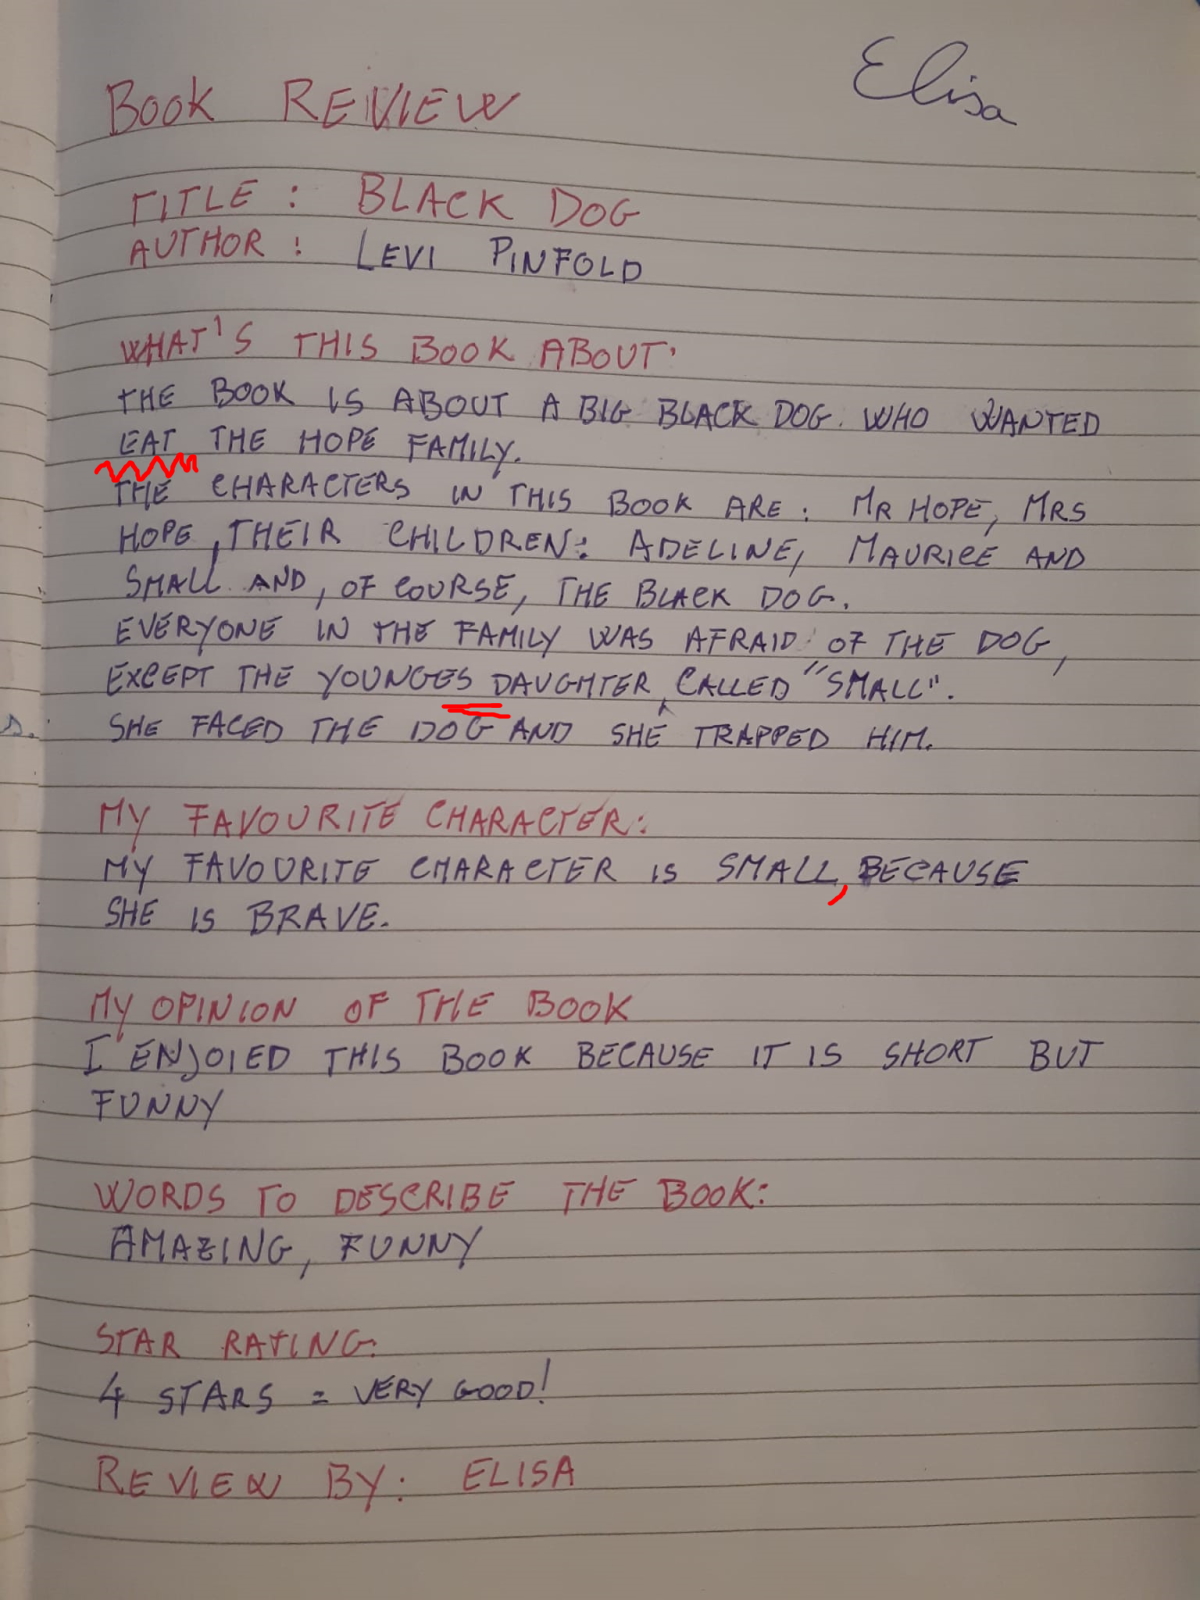 Elisa
BOOK REVIEW
TITLE : BLACK DOG
AUTHOR : LEVI PINFOLD
WHAT'S THIS BOOK ABOUT:
THE BOOK IS ABOUT A BIG BLACK DOG. WHO WANTED
EAT THE HOPE FAMILY.
THE CHARACTERS IN THIS BOOK ARE: MR HOPE, MRS
HOPE, THEIR CHILDREN: ADELINE, MAURICE AND
SMALL AND, OF COURSE, THE BLACK DOG.
EVERYONE IN THE FAMILY WAS AFRAID OF THE DOG,
EXCEPT THE YOUNGES DAUGHTER, CALLED "SMALL".
s. SHE FACED THE DOG AND SHE TRAPPED HIM.
MY FAVOURITE CHARACTER:
MY FAVOURITE CHARACTER IS SMALL, BECAUSE
SHE IS BRAVE.
MY OPINION OF THE BOOK
I ENJOIED THIS BOOK BECAUSE IT IS SHORT BUT
FUNNY
WORDS TO DESCRIBE THE BOOK:
AMAZING, FUNNY
STAR RATING:
4 STARS = VERY GOOD!
REVIEW BY: ELISA